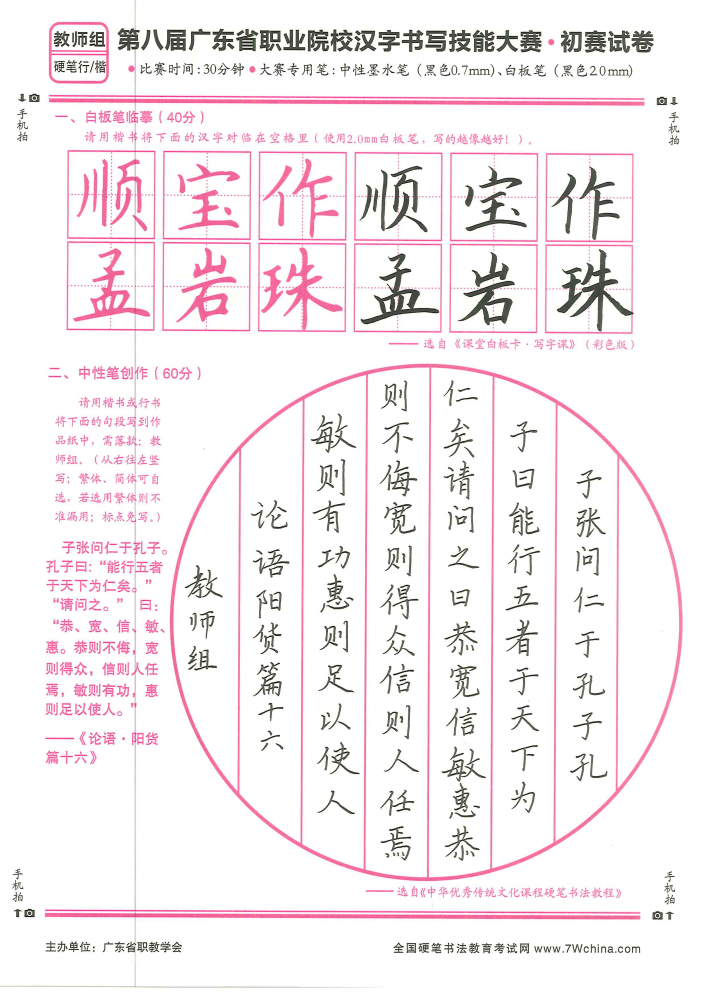 教师组
硬笔行/楷
第八届广东省职业院校汉字书写技能大赛·初赛试卷
●比赛时间:30分钟●大赛专用笔:中性墨水笔(黑色0.7mm)、白板笔(黑色2.0mm)
手机拍
手机拍
一、白板笔临摹(40分)
请用楷书将下面的汉字对临在空格里(使用2.0mm白板笔,写的越像越好!)。
顺宝作顺宝作
孟岩珠孟岩珠
——选自《课堂白板卡·写字课》(彩色版)
二、中性笔创作(60分)
请用楷书或行书
将下面的句段写到作
品纸中,需落款:教
师组。(从右往左竖
写;繁体、简体可自
选,若选用繁体则不
准漏用;标点免写。)
子张问仁于孔子。
孔子曰:“能行五者
于天下为仁矣。”
“请问之。” 曰:
“恭、宽、信、敏、
惠。恭则不侮,宽
则得众,信则人任
焉,敏则有功,惠
则足以使人。”
——《论语·阳货
篇十六》
子张问仁于孔子孔
子曰能行五者于天下为
仁矣请问之曰恭宽信敏惠恭
则不侮宽则得众信则人任焉
敏则有功惠则足以使人
论语阳货篇十六
教师组
——选自《中华优秀传统文化课程硬笔书法教程》
手机拍
手机拍
主办单位:广东省职教学会
全国硬笔书法教育考试网 www.7Wchina.com